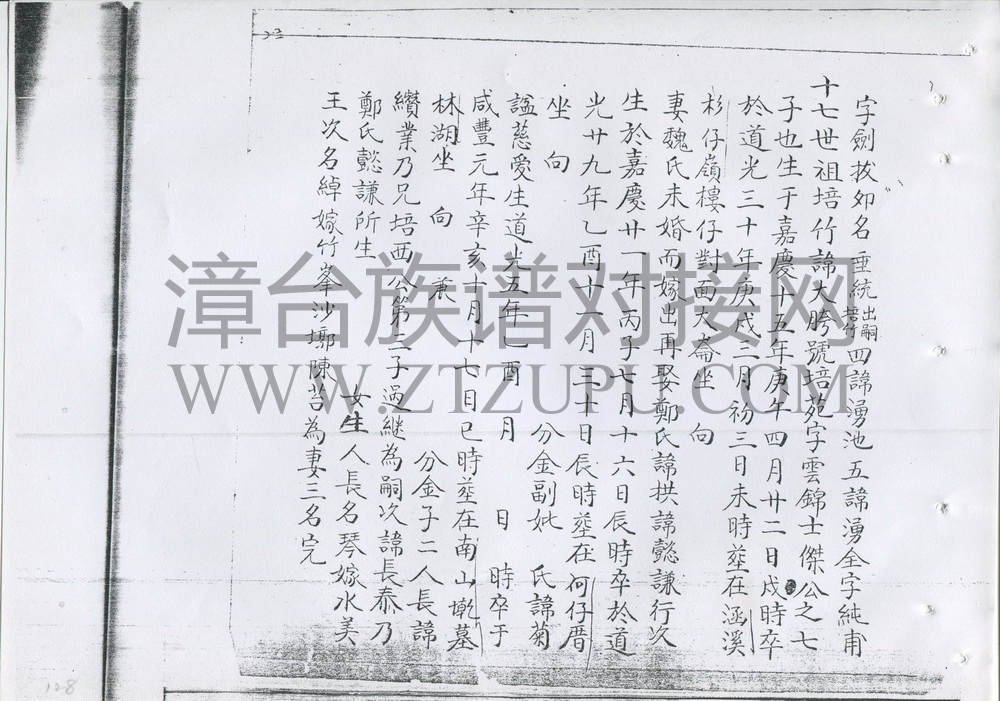 字劍拔名垂統出嗣培竹四諱湧池五諱湧全字純甫
十七世祖培竹諱大勝號培苑字雲錦士傑公之七
子也生于嘉慶十五年庚午四月廿二日戌時卒
於道光三十年庚戌二月初三日未時塟在涵溪
杉仔嶺樓仔對面大崙坐向
妻魏氏未婚而嫁出再娶鄭氏諱拱諱懿謙行次
生於嘉慶廿一年丙子七月十六日辰時卒於道
光廿九年乙酉十一月三十日辰時塟在何仔厝
坐 向 分金副妣 氏諱菊
諡慈愛生道光五年乙酉 月 日 時卒于
咸豐元年辛亥十月十七日巳時塟在南山墘墓
林湖坐 向 兼 分金子二人長諱
纘業乃兄培西公第三子過継為嗣次諱長泰乃
鄭氏懿謙所生 女生 人長名琴嫁水美
王次名綽嫁竹峯沙墩陳苔為妻三名完
漳台族谱对接网
WWW.ZTZUPU.COM
128